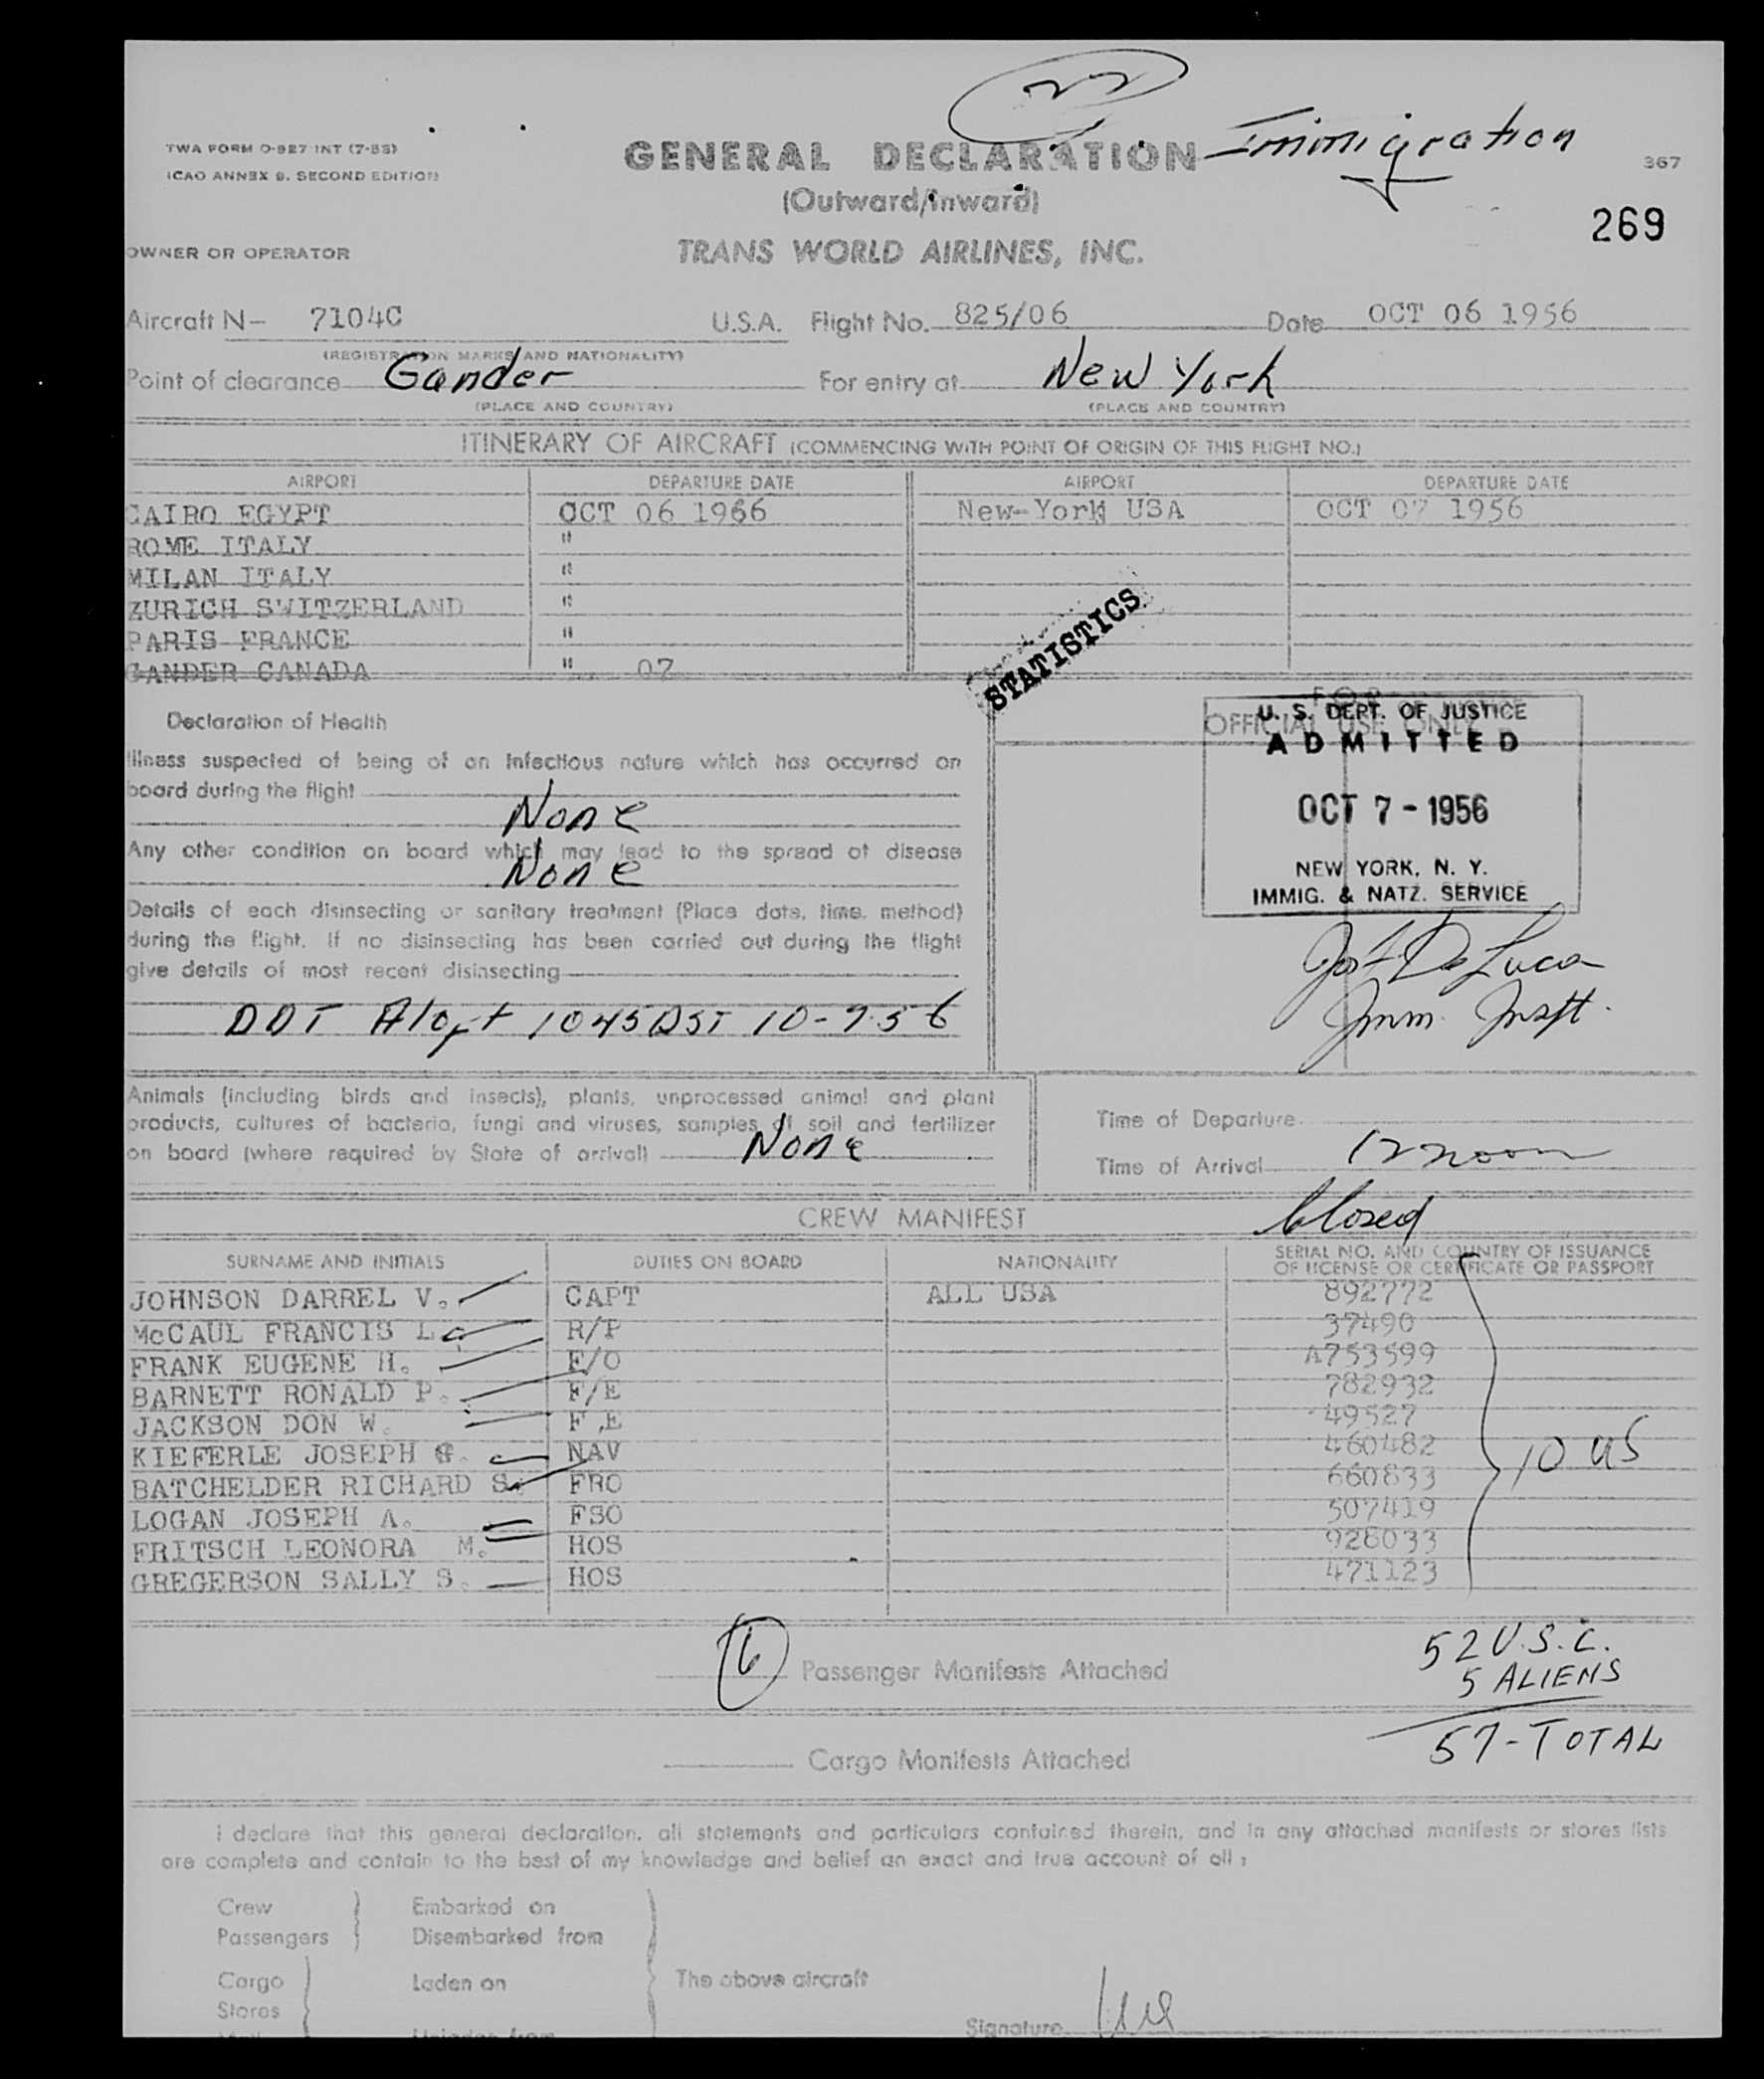 22
Immigration
TWA FORM O-827 INT (7-55)
ICAO ANNEX 9. SECOND EDITION
GENERAL DECLARATION
367
(Outward/Inward)
269
OWNER OR OPERATOR
TRANS WORLD AIRLINES, INC.
Aircraft N- 7104C U.S.A. Flight No. 825/06 Date OCT 06 1956
(REGISTRATION MARKS AND NATIONALITY)
Point of clearance Gander For entry at New York
(PLACE AND COUNTRY) (PLACE AND COUNTRY)
ITINERARY OF AIRCRAFT (COMMENCING WITH POINT OF ORIGIN OF THIS FLIGHT NO.)
AIRPORT DEPARTURE DATE AIRPORT DEPARTURE DATE
CAIRO EGYPT OCT 06 1966 New-York USA OCT 07 1956
ROME ITALY "
MILAN ITALY "
ZURICH SWITZERLAND "
PARIS FRANCE "
GANDER CANADA " 07
STATISTICS
FOR
OFFICIAL USE ONLY
U. S. DEPT. OF JUSTICE
ADMITTED
OCT 7 - 1956
NEW YORK, N. Y.
IMMIG. & NATZ. SERVICE
De Luca
Imm. Inspt.
Declaration of Health
Illness suspected of being of an infectious nature which has occurred on
board during the flight
None
Any other condition on board which may lead to the spread of disease
None
Details of each disinsecting or sanitary treatment (Place date, time, method)
during the flight. If no disinsecting has been carried out during the flight
give details of most recent disinsecting
DDT Aloft 1045 10-7-56
Animals (including birds and insects), plants, unprocessed animal and plant
products, cultures of bacteria, fungi and viruses, samples of soil and fertilizer
on board (where required by State of arrival) None
Time of Departure
Time of Arrival 12 noon
CREW MANIFEST
Closed
SURNAME AND INITIALS DUTIES ON BOARD NATIONALITY SERIAL NO. AND COUNTRY OF ISSUANCE
OF LICENSE OR CERTIFICATE OR PASSPORT
JOHNSON DARREL V. CAPT ALL USA 892772
McCAUL FRANCIS L. R/P 37490
FRANK EUGENE H. F/O A753599
BARNETT RONALD P. F/E 782932
JACKSON DON W. F/E 49527
KIEFERLE JOSEPH G. NAV 460482
BATCHELDER RICHARD S. FRO 660833
LOGAN JOSEPH A. FSO 507419
FRITSCH LEONORA M. HOS 928033
GREGERSON SALLY S. HOS 471123
10 US
6 Passenger Manifests Attached
52 U.S.C.
5 ALIENS
57-TOTAL
Cargo Manifests Attached
I declare that this general declaration, all statements and particulars contained therein, and in any attached manifests or stores lists
are complete and contain to the best of my knowledge and belief an exact and true account of all:
Crew Embarked on
Passengers Disembarked from
Cargo Laden on The above aircraft
Stores
Signature